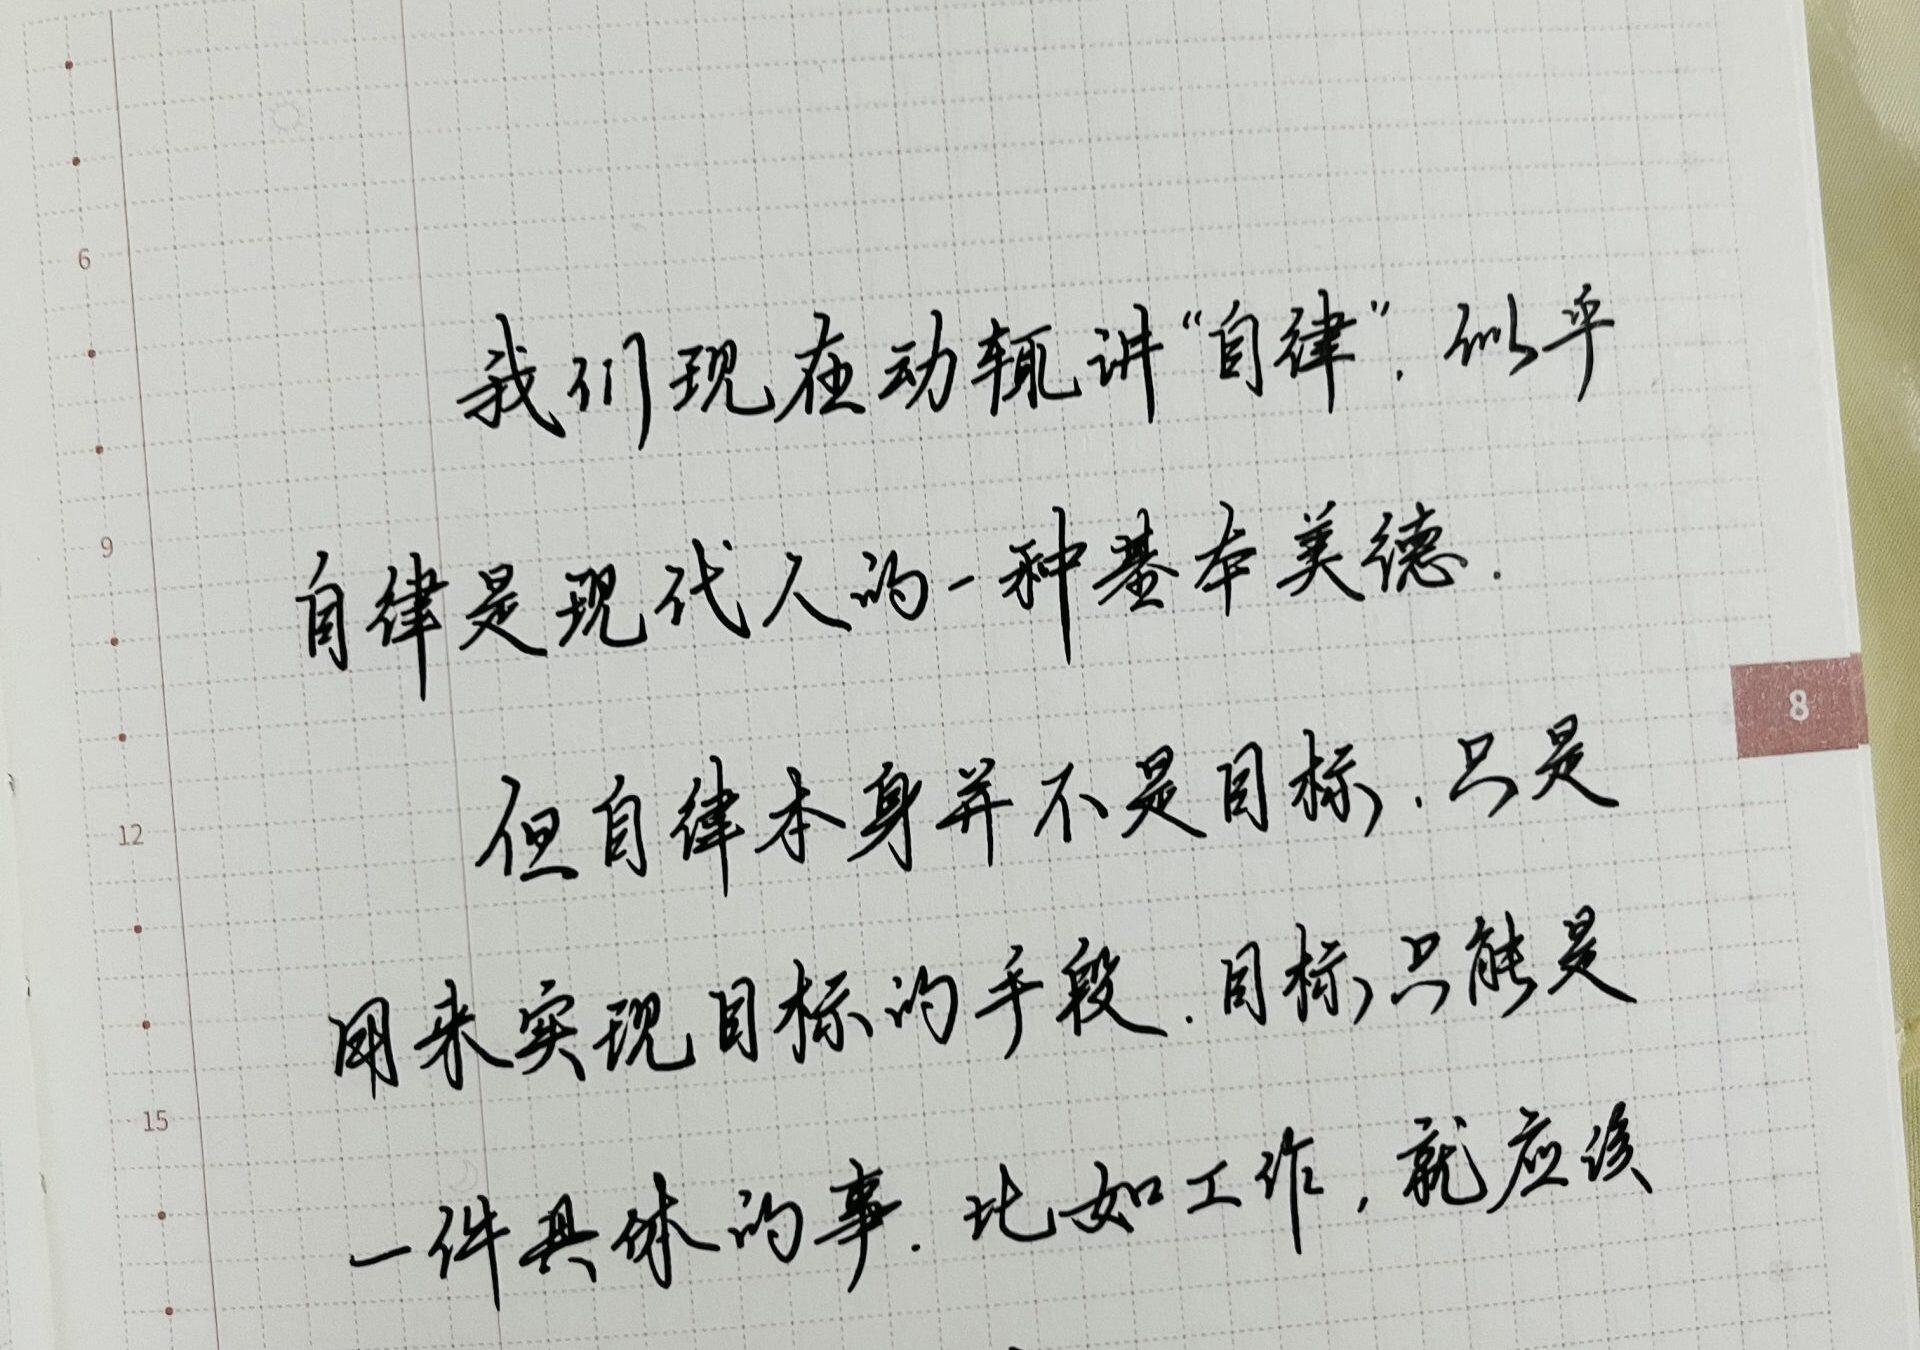 6
我们现在动辄讲“自律”.似乎
9
自律是现代人的一种基本美德.
8
但自律本身并不是目标.只是
12
用来实现目标的手段.目标只能是
15
一件具体的事.比如工作,就应该